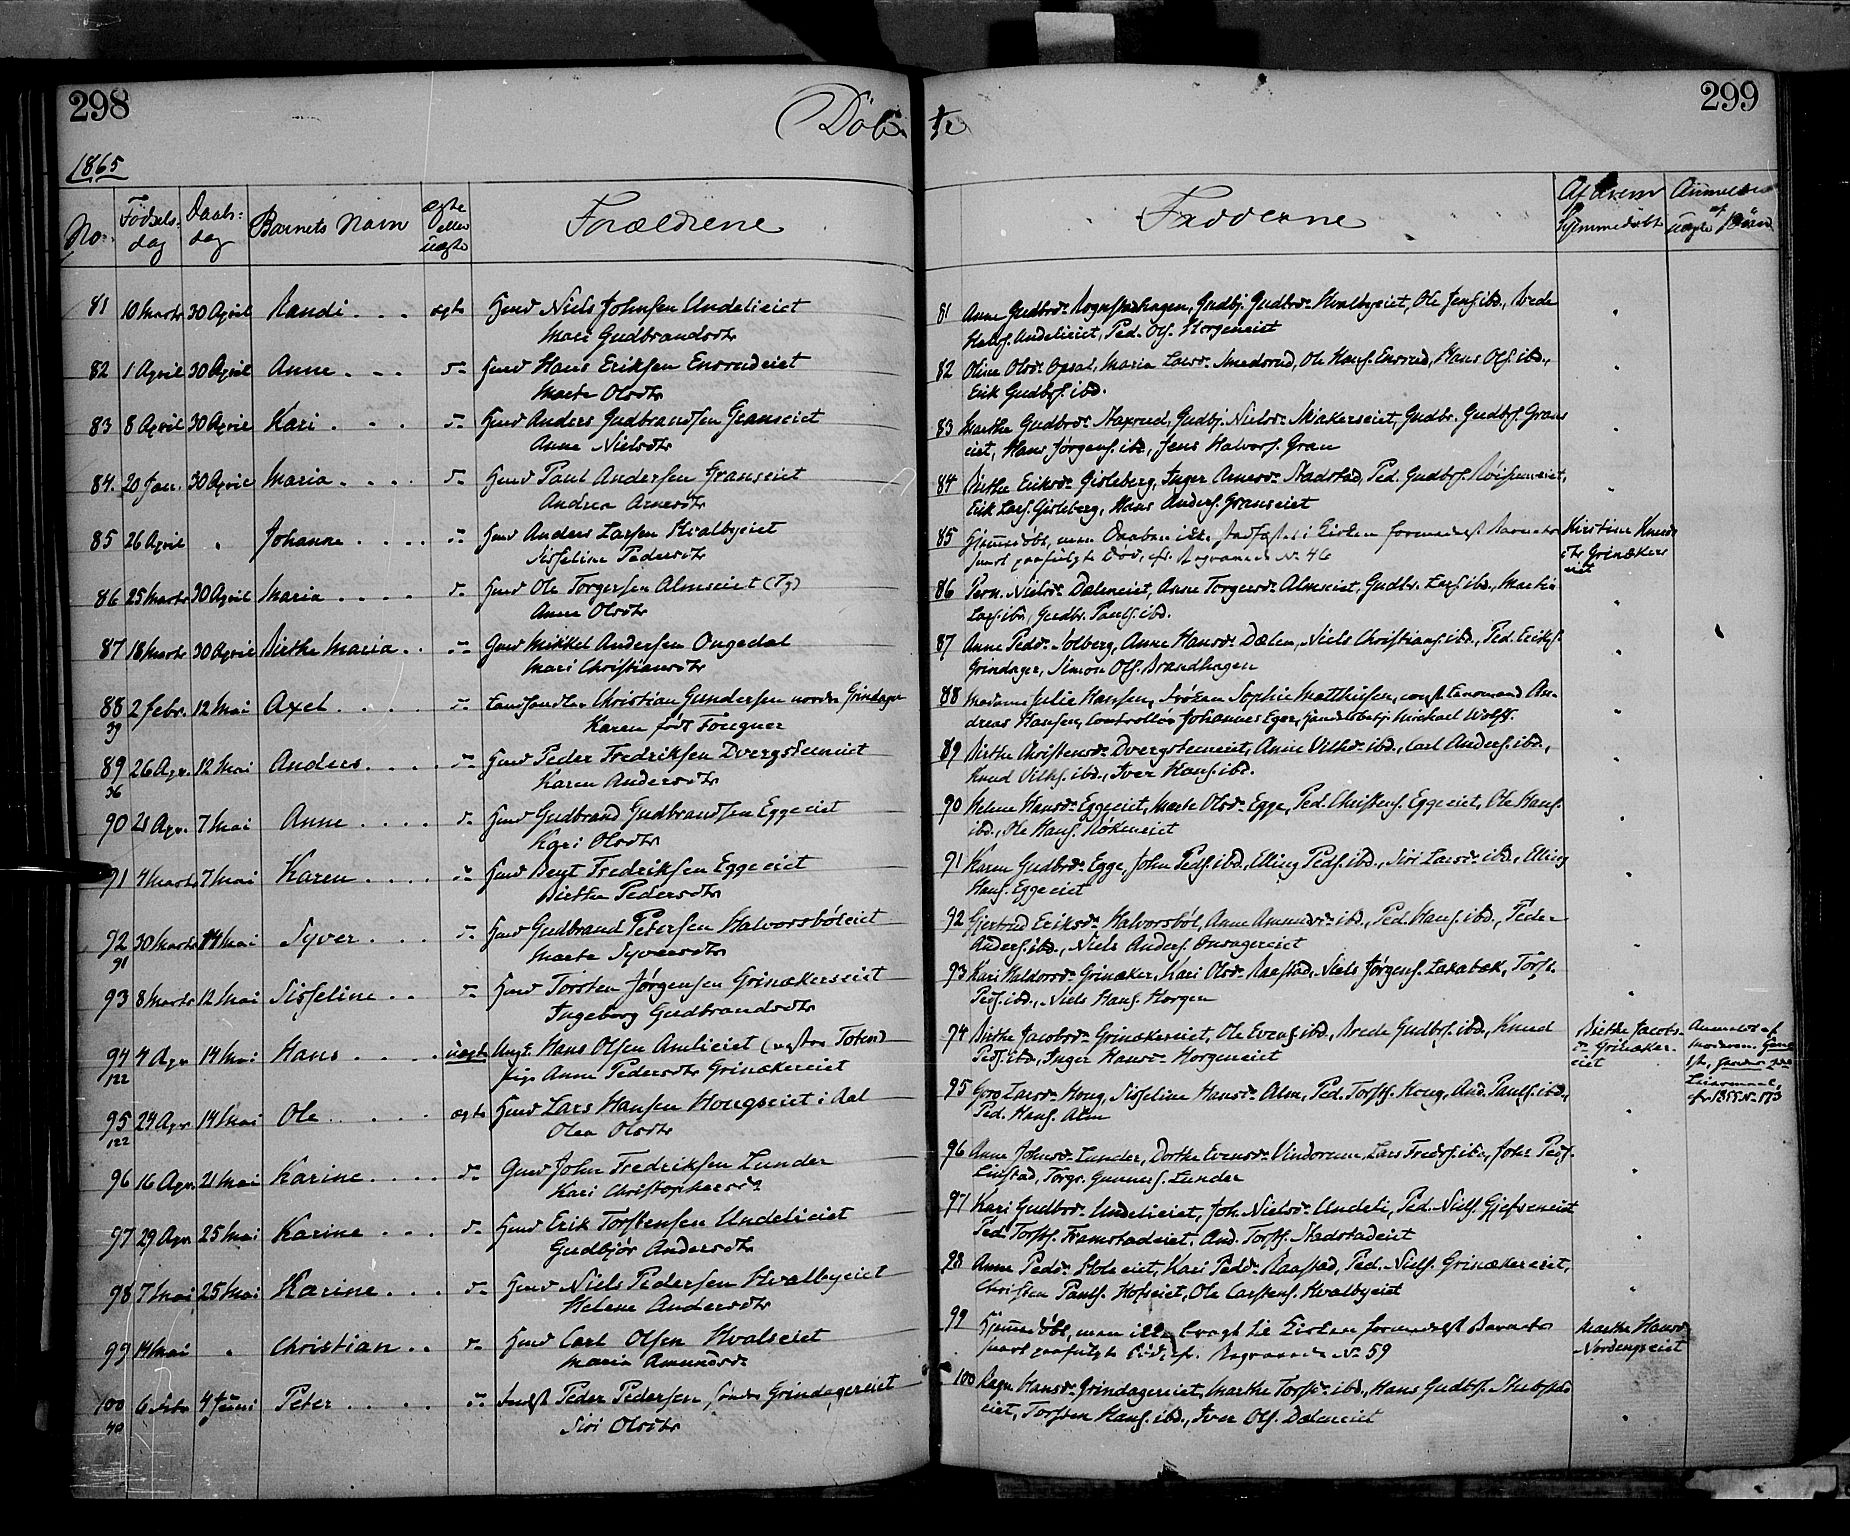 298
Döb
te
299
1865
No.
Födsels-
dag
Daabs-
dag
Barnets Navn
ægte
eller
uægte
Forældrene
Fadderne
Af hvem
hjemmedöbt
Anmeldes
af
uægte Börn
81 10 Marts 30 April Randi ægte Huusm Niels Johnsen Undelieiet
Mari Gudbrandsdtr
82 1 April 30 April Anne Hans Eriksen Ensrudeiet
Marte Olsdtr
83 8 April 30 April Kari Anders Gudbrandsen Granseiet
Anne Nielsdtr
84. 20 Jan. 30 April Maria Paul Andersen Granseiet
Andrea Arnesdtr
85 26 April Johanne Anders Larsen Hvalbyeiet
Sisseline Pedersdtr
86 25 Marts 30 April Maria Ole Torgersen Almseiet (Tg)
Anne Olsdtr
87 18 Marts 30 April Birthe Maria Mikkel Andersen Ongedal
Mari Christiansdtr
88 2 Febr. 12 Mai Axel Landhandler Christian Gundersen nordre Grindager
39
Karen född Fougner
89 26 Apr. 12 Mai Anders Peder Fredriksen Dvergsteneiet
36
Karen Andersdtr
90 21 Apr. 7 Mai Anne Gudbrand Gudbrandsen Eggeeiet
Kari Olsdtr
91 4 Marts 7 Mai Karen Bent Fredriksen Eggeeiet
Birthe Pedersdtr
92 30 Marts 14 Mai Syver Gudbrand Petersen Halvorsböleiet
91
Marte Syversdtr
93 8 Marts 12 Mai Sisseline Torsten Jörgensen Grinækerseiet
Ingeborg Gudbrandsdtr
94 4 Apr. 14 Mai Hans uægte Ungk. Hans Olsen Amlieiet (vestre Toten)
122
Pige Anne Pedersdtr Grinækereiet
95 24 Apr. 14 Mai Ole ægte Lars Hansen Hougseiet i Aal
122
Olea Olsdtr
96 16 Apr. 21 Mai Karine John Fredriksen Lunder
Kari Christophersdtr
97 29 Apr. 25 Mai Karine Erik Torstensen Undelieiet
Gudbjör Andersdtr
98 7 Mai 25 Mai Karine Niels Pedersen Hvalbyeiet
Helene Andersdtr
99 14 Mai Christian Carl Olsen Hvalseiet
Maria Amundsdr
100 6 Febr 4 Juni Peter Inderst Peder Pedersen söndre Grindagereiet
40
Siri Olsdtr
81 Anne Gudbrdr Rognstadhagen, Gudbj. Gudbrdr Hvalbyeiet, Ole Jens. ibd., Brede
Hans. Undelieiet, Ped. Ols. Horgeneiet
82 Oline Olsdr Opsal, Maria Larsdr Smedsrud, Ole Hans. Ensrud, Hans Ols. ibd.,
Erik Gudbs. ibd.
83 Marthe Gudbrdr Gudbj. Nielsdr Skiakerseiet, Gudbr. Gudbrs. Grans
eiet, Hans Jörgens. ibd., Jens Halvors. Gran
84 Birthe Eriksdr Gisleberg, Inger Arnesdr Stadstad, Ped. Gudbrs.
Erik Lars. Gisleberg, Hans Anders. Granseiet
85 Hjemmedöbt, men Daaben ikke stadfæstet i Kirken formedelst Barnets
snart paafulgte Död, cfr. Begravede No 46
Kirstine Knuds
dtr Grinækers
eiet
86 Pern. Nielsdr Dæleneiet, Anne Torgersdr Almseiet, Gudbr. Lars. ibd., Martin
Lars. ibd., Gudbr. Pauls. ibd.
87 Anne Pedsdr Solberg, Anne Hansdr Dælen, Niels Christians. ibd., Ped. Eriks.
Grindager, Simon Ols. Brandhagen
88 Madame Julie Hansen, Fröken Sophie Matthiesen, const. Lensmand An-
dreas Hansen, Controllör Johannes Eger, Handelsbetj. Michael Wolff.
89 Birthe Christensdr Dvergsteneiet, Anne Vilhdr ibd., Carl Anders. ibd.,
Knud Vilhs. ibd., Iver Hans. ibd.
90 Helene Hansdr Eggeeiet, Marte Olsdr Egge, Ped. Christens. Eggeeiet, Ole Hans.
ibd., Ole Hans.
91 Karen Gudbrdr Egge, John Peds. ibd., Elling Peds. ibd., Siri Larsdr ibd., Elling
Hans. Eggeeiet
92 Gjertrud Eriksdr Halvorsböl, Anne Amundsdr ibd., Ped. Hans. ibd., Peder
Anders. ibd., Niels Anders. Onsagereiet
93 Kari Haldorsdr Grinæker, Kari Olsdr Raastad, Niels Jörgens. Lakabæk, Torst.
Peds. ibd., Niels Hans. Horgen
94 Birthe Jacobsdr Grinækereiet, Ole Evens. ibd., Brede Gudbrs. ibd., Knud
Peds. ibd., Inger Hansdr Horgeneiet
Birthe Jacobs-
dr Grinæker-
eiet
Anmeldt af
Moderen.
Leiermaal,
cfr. 1855 No 173
95 Goro Larsdr Houg, Sisseline Hansdr Alm, Ped. Torsts. Houg, And. Pauls. ibd.,
Ped. Hans. Alm
96 Anne Johnsdr Lunder, Dorthe Evensdr Vindorum, Lars Freds. ibd., John Peds.
Linstad, Torgr. Gunners. Lunder
97 Kari Gudbrdr Undelieiet, Joh. Nielsdr Undeli, Ped. Niels. Gjefseneiet
Ped. Torsts. Framstadeiet, And. Torsts. Stadstadeiet
98 Anne Pedsdr Hole eiet, Kari Pedsdr Raastad, Ped. Niels. Grinækereiet,
Christen Pauls. Hofseiet, Ole Carstens. Hvalbyeiet
99 Hjemmedöbt, men ikke bragt til Kirken formedelst Barnets
snart paafulgte Död, cfr. Begravede No 59
Marthe Hansdr
Nordengseiet
100 Ragn. Hansdr Grindagereiet, Marthe Torstdr ibd., Hans Gudbrs.
eiet, Torsten Hans. ibd., Iver Ols. Dæleneiet